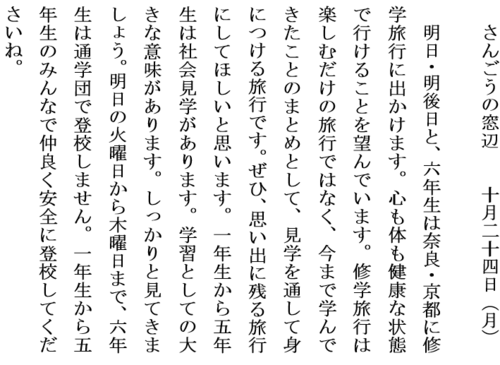 さんごうの窓辺　　十月二十四日（月）
　明日・明後日と、六年生は奈良・京都に修
学旅行に出かけます。心も体も健康な状態
で行けることを望んでいます。修学旅行は
楽しむだけの旅行ではなく、今まで学んで
きたことのまとめとして、見学を通して身
につける旅行です。ぜひ、思い出に残る旅行
にしてほしいと思います。一年生から五年
生は社会見学があります。学習としての大
きな意味があります。しっかりと見てきま
しょう。明日の火曜日から木曜日まで、六年
生は通学団で登校しません。一年生から五
年生のみんなで仲良く安全に登校してくだ
さいね。